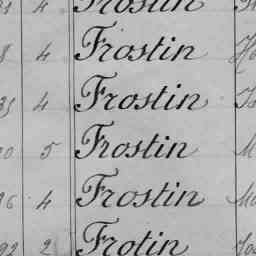 4 Frostin
8 4 Frostin
4 Frostin
5 Frostin
4 Frostin
92 2 Frotin